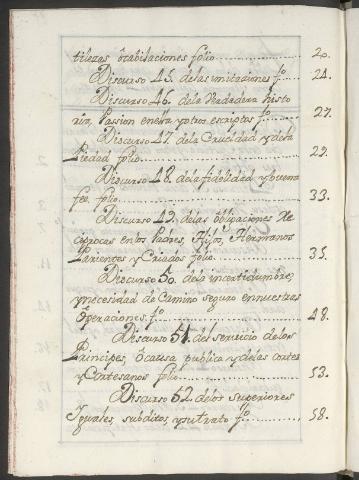 tilezas, ò cabilaciones folio............ 20.
Discurso 45. de las imitaciones fº... 24.
Discurso 46. de la Verdadera histo
ria, Passion en ella y otros escriptos fº.... 27.
Discurso 47. de la Crueldad, y de la
Piedad folio............ 29.
Discurso 48. de la fidelidad, y buena
fee. folio............ 33.
Discurso 49. de las obligaciones Re
ciprocas entre Padres, Hijos, Hermanos
Parientes y Criados folio............ 35.
Discurso 50. de la incertidumbre,
y necesidad de Camino seguro en nuestras
Operaciones. fº............ 48.
Discurso 51. del servicio de los
Principes, ò causa publica y de las cortes
y Cortesanos folio............ 53.
Discurso 52. de los Superiores
Iguales, subditos, y su trato fº............ 58.